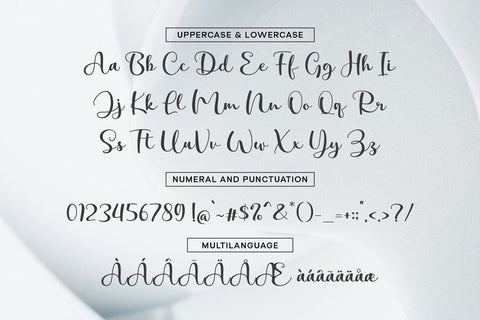 UPPERCASE & LOWERCASE
Aa Bb Cc Dd Ee Ff Gg Hh Ii
Jj Kk Ll Mm Nn Oo Qq Rr
Ss Tt UuVv Ww Xx Yy Zz
NUMERAL AND PUNCTUATION
0123456789 !@`~#$%^&*()-_=+:;",<.>?/
MULTILANGUAGE
ÀÁÂÃÄÅÆ àáâãäåæ